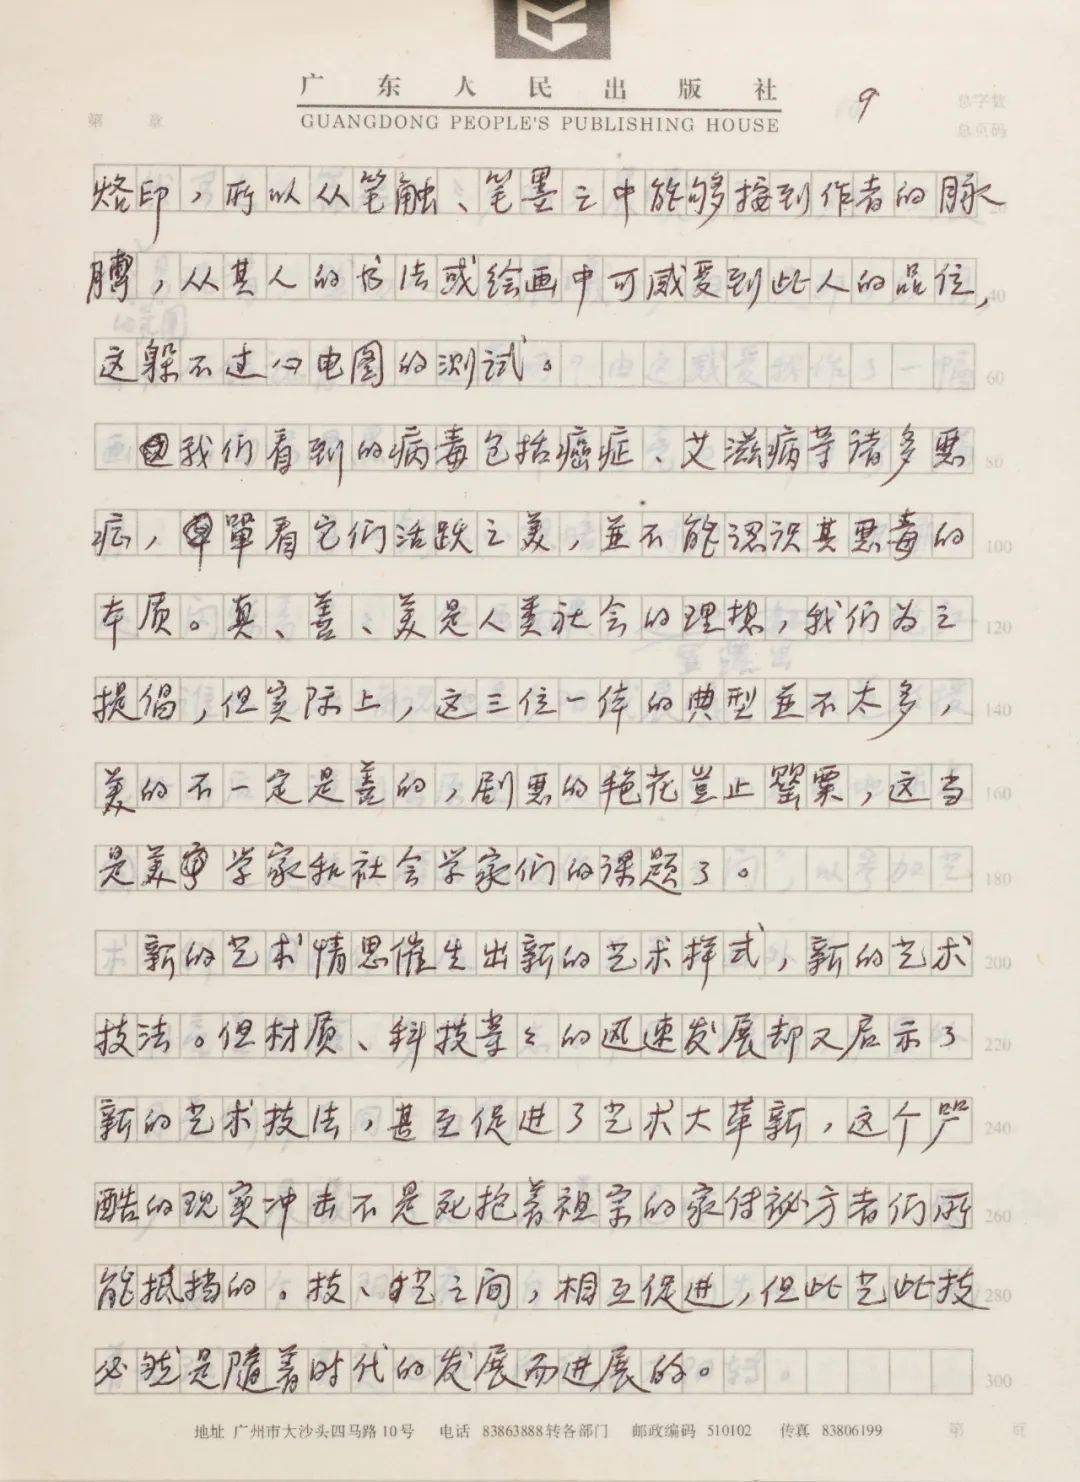 广东人民出版社
GUANGDONG PEOPLE'S PUBLISHING HOUSE
9
总字数
第 章
总页码
烙印，所以从笔触、笔墨之中能够接到作者的脉
膊，从其人的书法或绘画中可感受到此人的品位，
这躲不过心电图的测试。
我们看到的病毒包括癌症、艾滋病等诸多恶
症，單看它们活跃之美，並不能認识其恶毒的
本质。真、善、美是人类社会的理想，我们为之
提倡，但实际上，这三位一体的典型並不太多，
美的不一定是善的，剧恶的艳花豈止罂粟，这当
是美学家和社会学家们的课题了。
新的艺术情思催生出新的艺术样式，新的艺术
技法。但材质、科技等々的迅速发展却又启示了
新的艺术技法，甚至促进了艺术大革新，这个严
酷的现实冲击不是死抱着祖宗的家传秘方者们所
能抵挡的。技、艺之间，相互促进，但此艺此技
必然是随着时代的发展而进展的。
20
40
60
80
100
120
140
160
180
200
220
240
260
280
300
地址 广州市大沙头四马路10号 电话 83863888转各部门 邮政编码 510102 传真 83806199
第 页